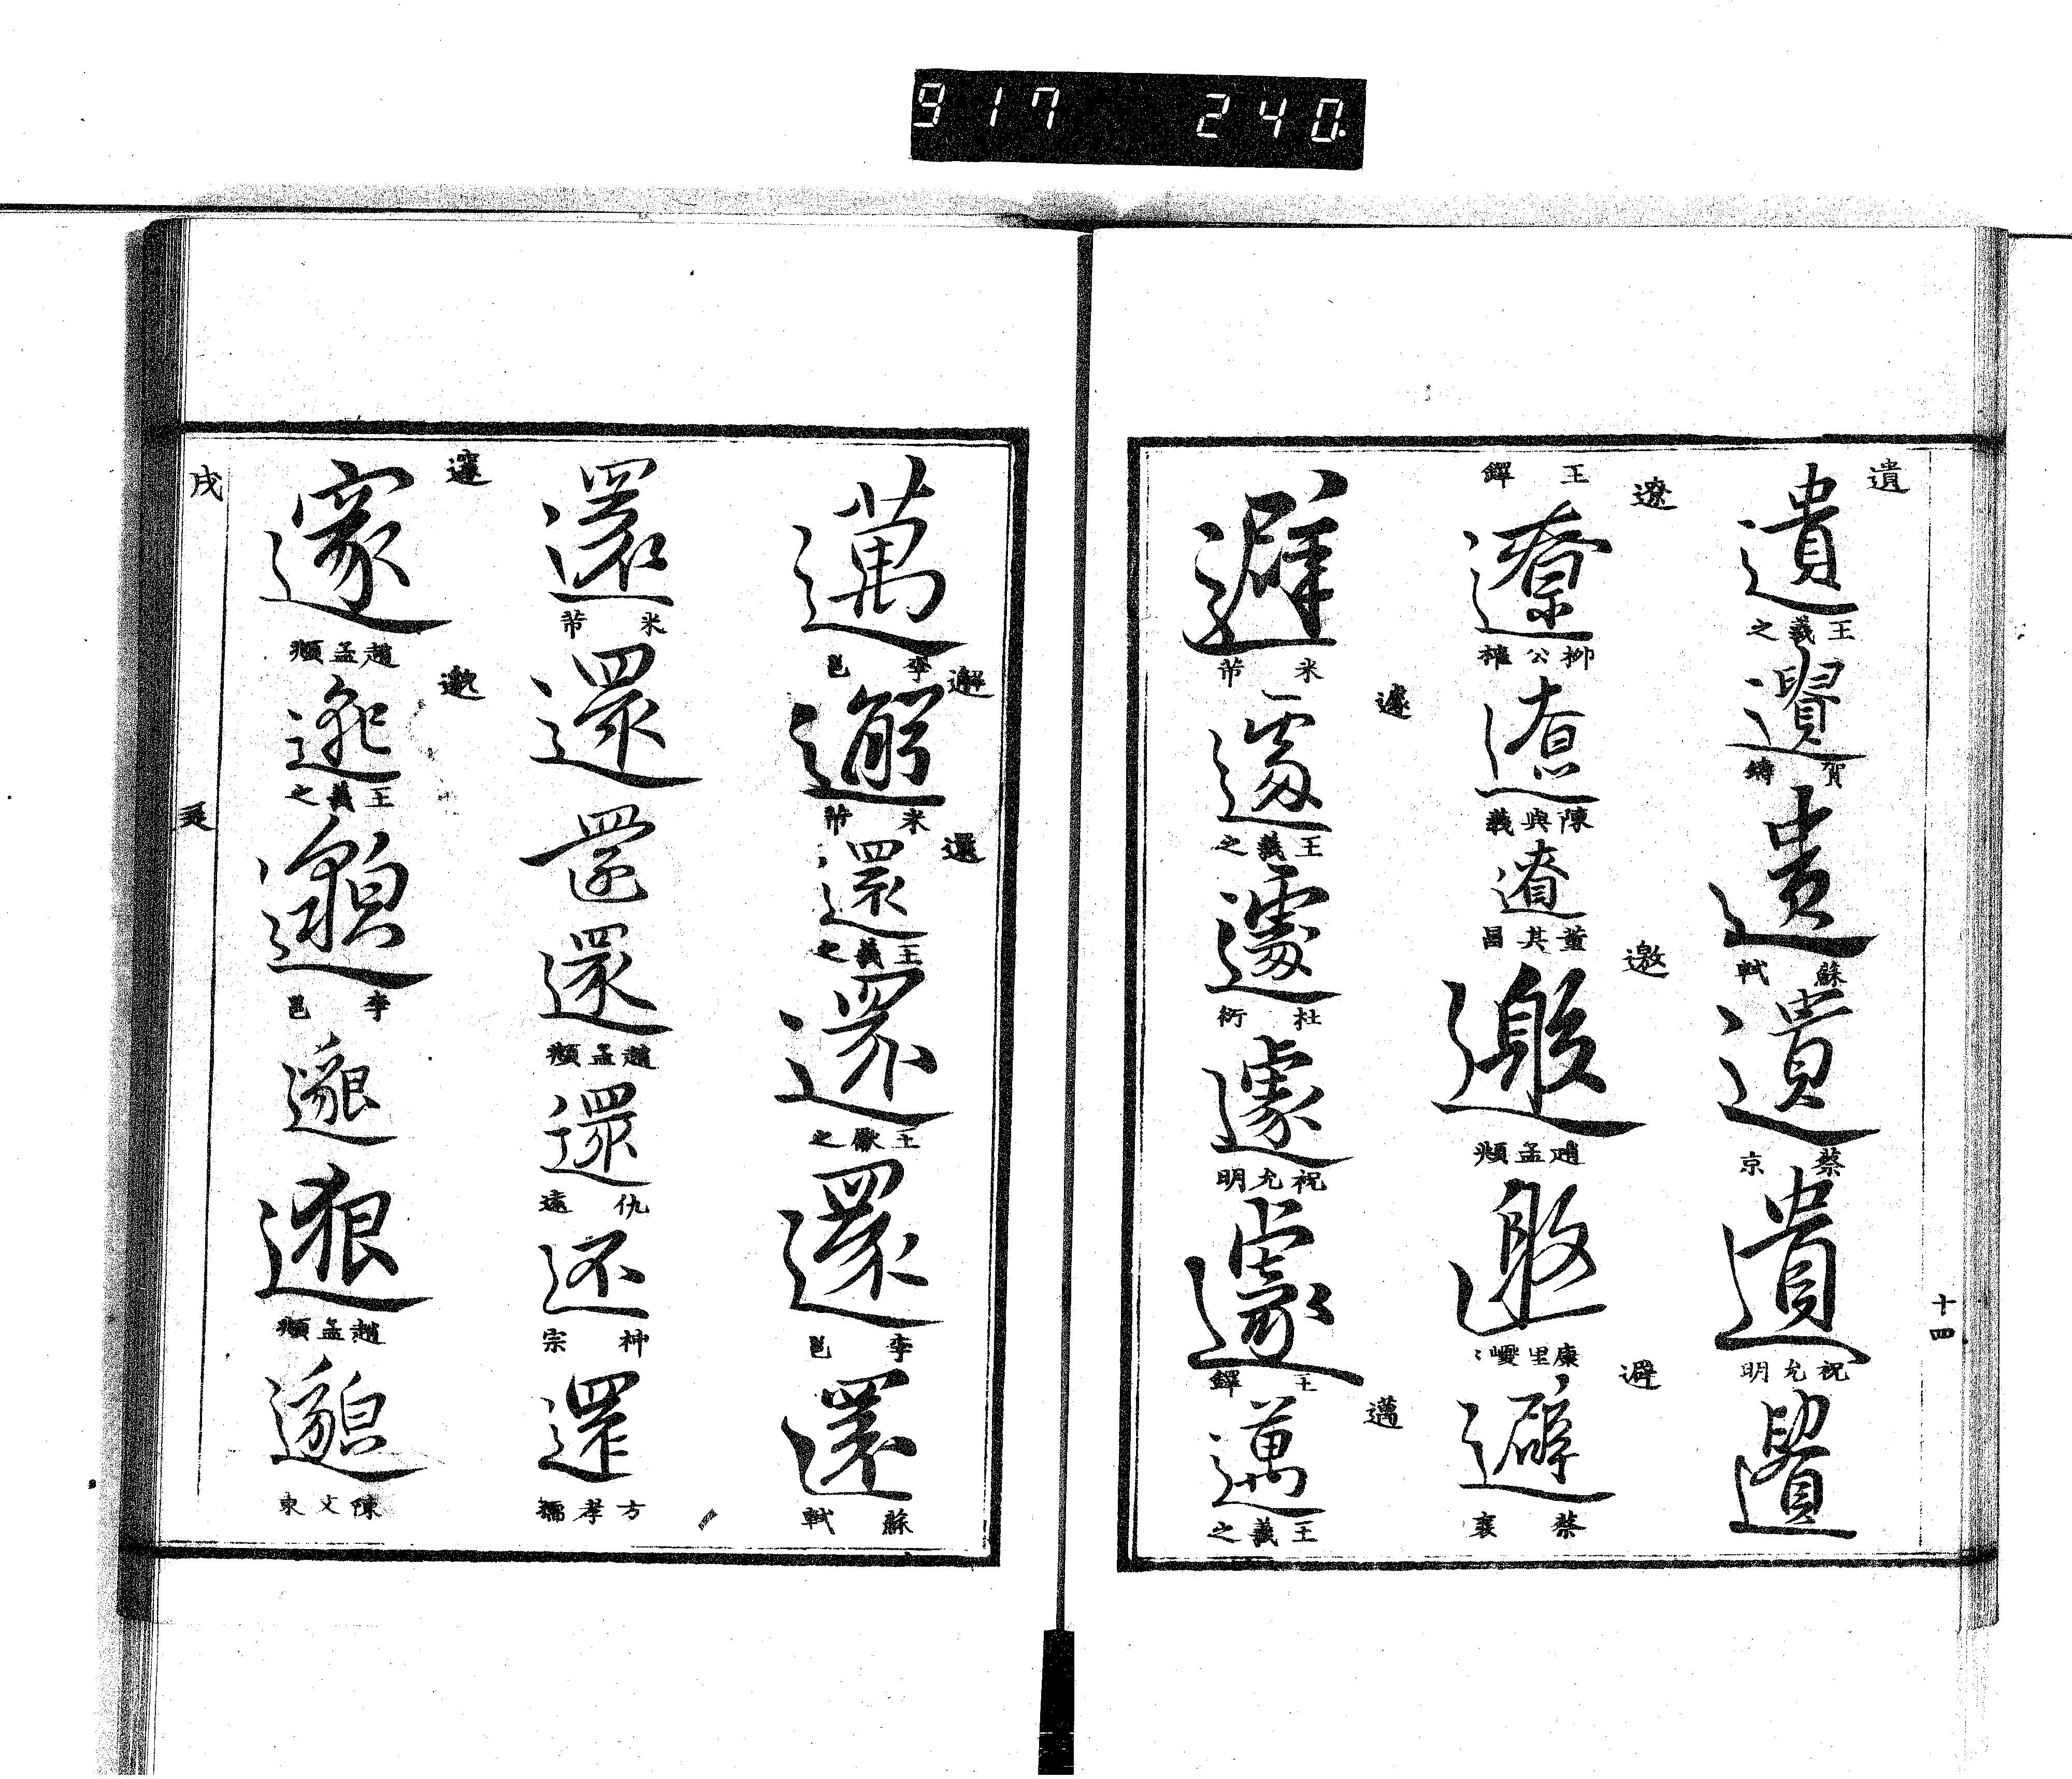 917 240.
十四
遺
遺
王羲之
遺
賀鑄
遺
蘇軾
遺
蔡京
遺
祝允明
遺
王鐸
遼
遼
柳公權
遼
陳與義
遼
董其昌
邀
邀
趙孟頫
邀
康里巙〻
避
避
蔡襄
避
米芾
遽
遽
王羲之
遽
杜衍
遽
祝允明
遽
王鐸
邁
邁
王羲之
邁
李邕
邂
邂
米芾
還
還
王羲之
還
王獻之
還
李邕
還
蘇軾
還
米芾
還
還
還
趙孟頫
還
仇遠
还
神宗
還
方孝孺
邃
趙孟頫
邈
王羲之
邈
李邕
邈
邈
趙孟頫
邈
陳文東
戌
辵